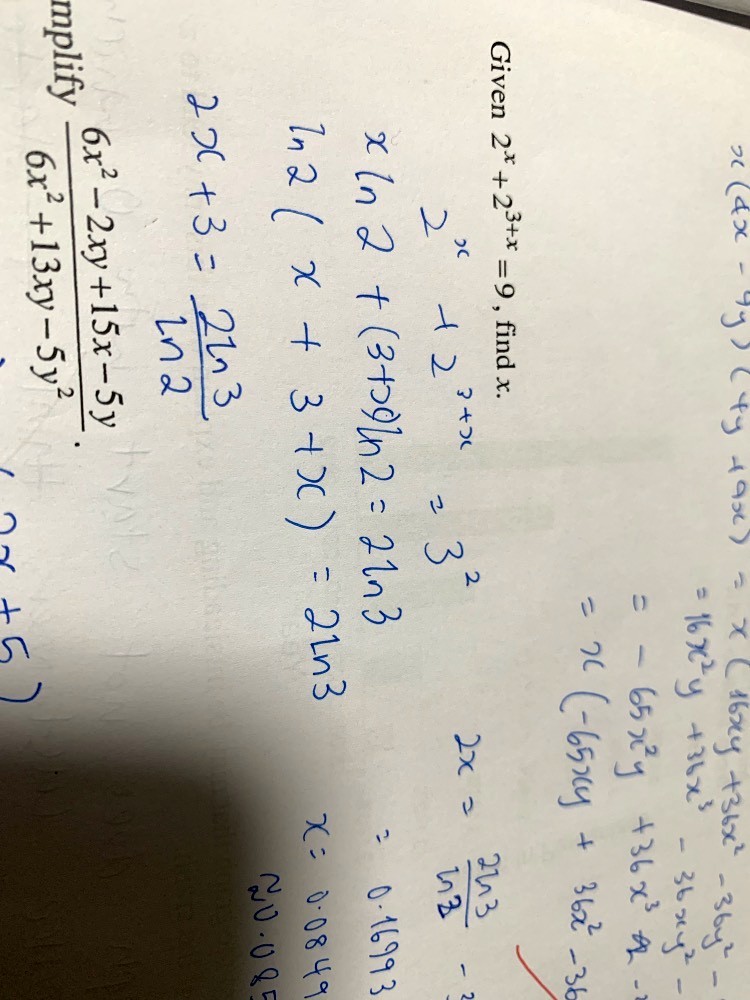 x(4x - 9y)(4y + 9x) = x(16xy + 36x² - 36y² -
= 16x²y + 36x³ - 36xy² -
= - 65x²y + 36x³
= x(-65xy + 36x² - 36
Given 2^x + 2^(3+x) = 9, find x.
2^x + 2^(3+x) = 3²
x ln 2 + (3+x)ln 2 = 2ln3
ln2 ( x + 3 + x) = 2ln3
2x + 3 = 2ln3 / ln2
2x = 2ln3 / ln2 - 3
= 0.16993
x = 0.0849
≈ 0.085
mplify (6x² - 2xy + 15x - 5y) / (6x² + 13xy - 5y²).
2x + 5)